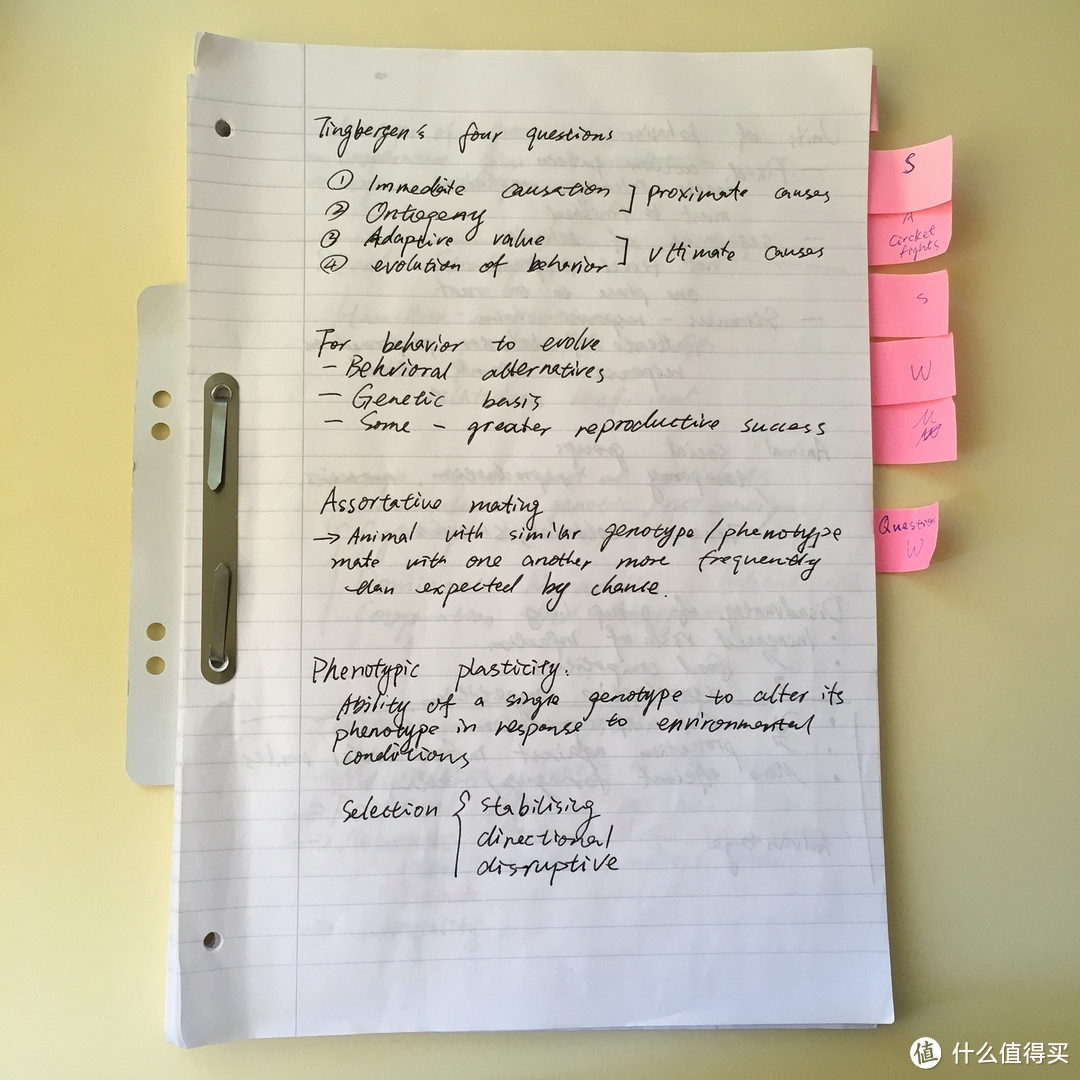 Tingbergen's four questions
① Immediate causation ] proximate causes
② Ontogeny
③ Adaptive value ] Ultimate causes
④ evolution of behavior
For behavior to evolve
- Behvioral alternatives
- Genetic basis
- Some - greater reproductive success
Assortative mating
→ Animal with similar genotype / phenotype
mate with one another more frequently
than expected by chance.
Phenotypic plasticity.
Ability of a single genotype to alter its
phenotype in response to environmental
conditions
Selection { stabilising
directional
disruptive
S
A
Circket
fights
S
W
Question
W
值 什么值得买